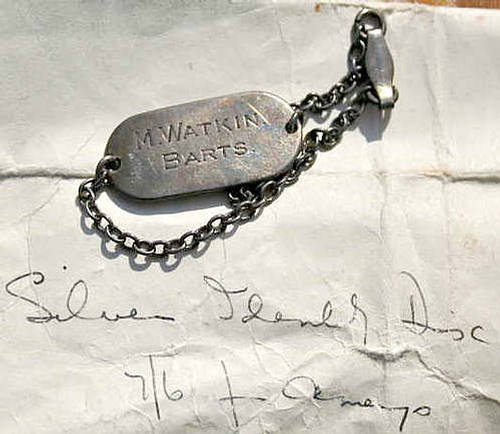 M. WATKIN.
BARTS.
Silver Identity Disc
7/6